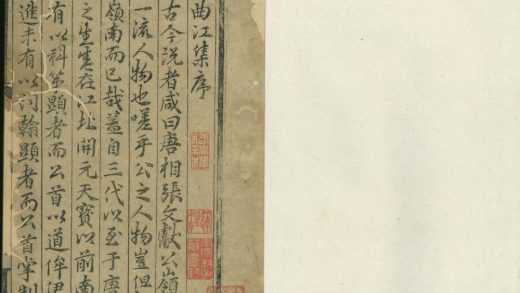 曲江集序
古今説者咸曰唐相張文獻公嶺
一流人物也嗟乎公之人物豈但
嶺南而已哉盖自三代以至于唐
之生在江北開元天寶以前南
有以科第顯者而公首以道侔伊
進未有以詞翰顯者而公首掌制